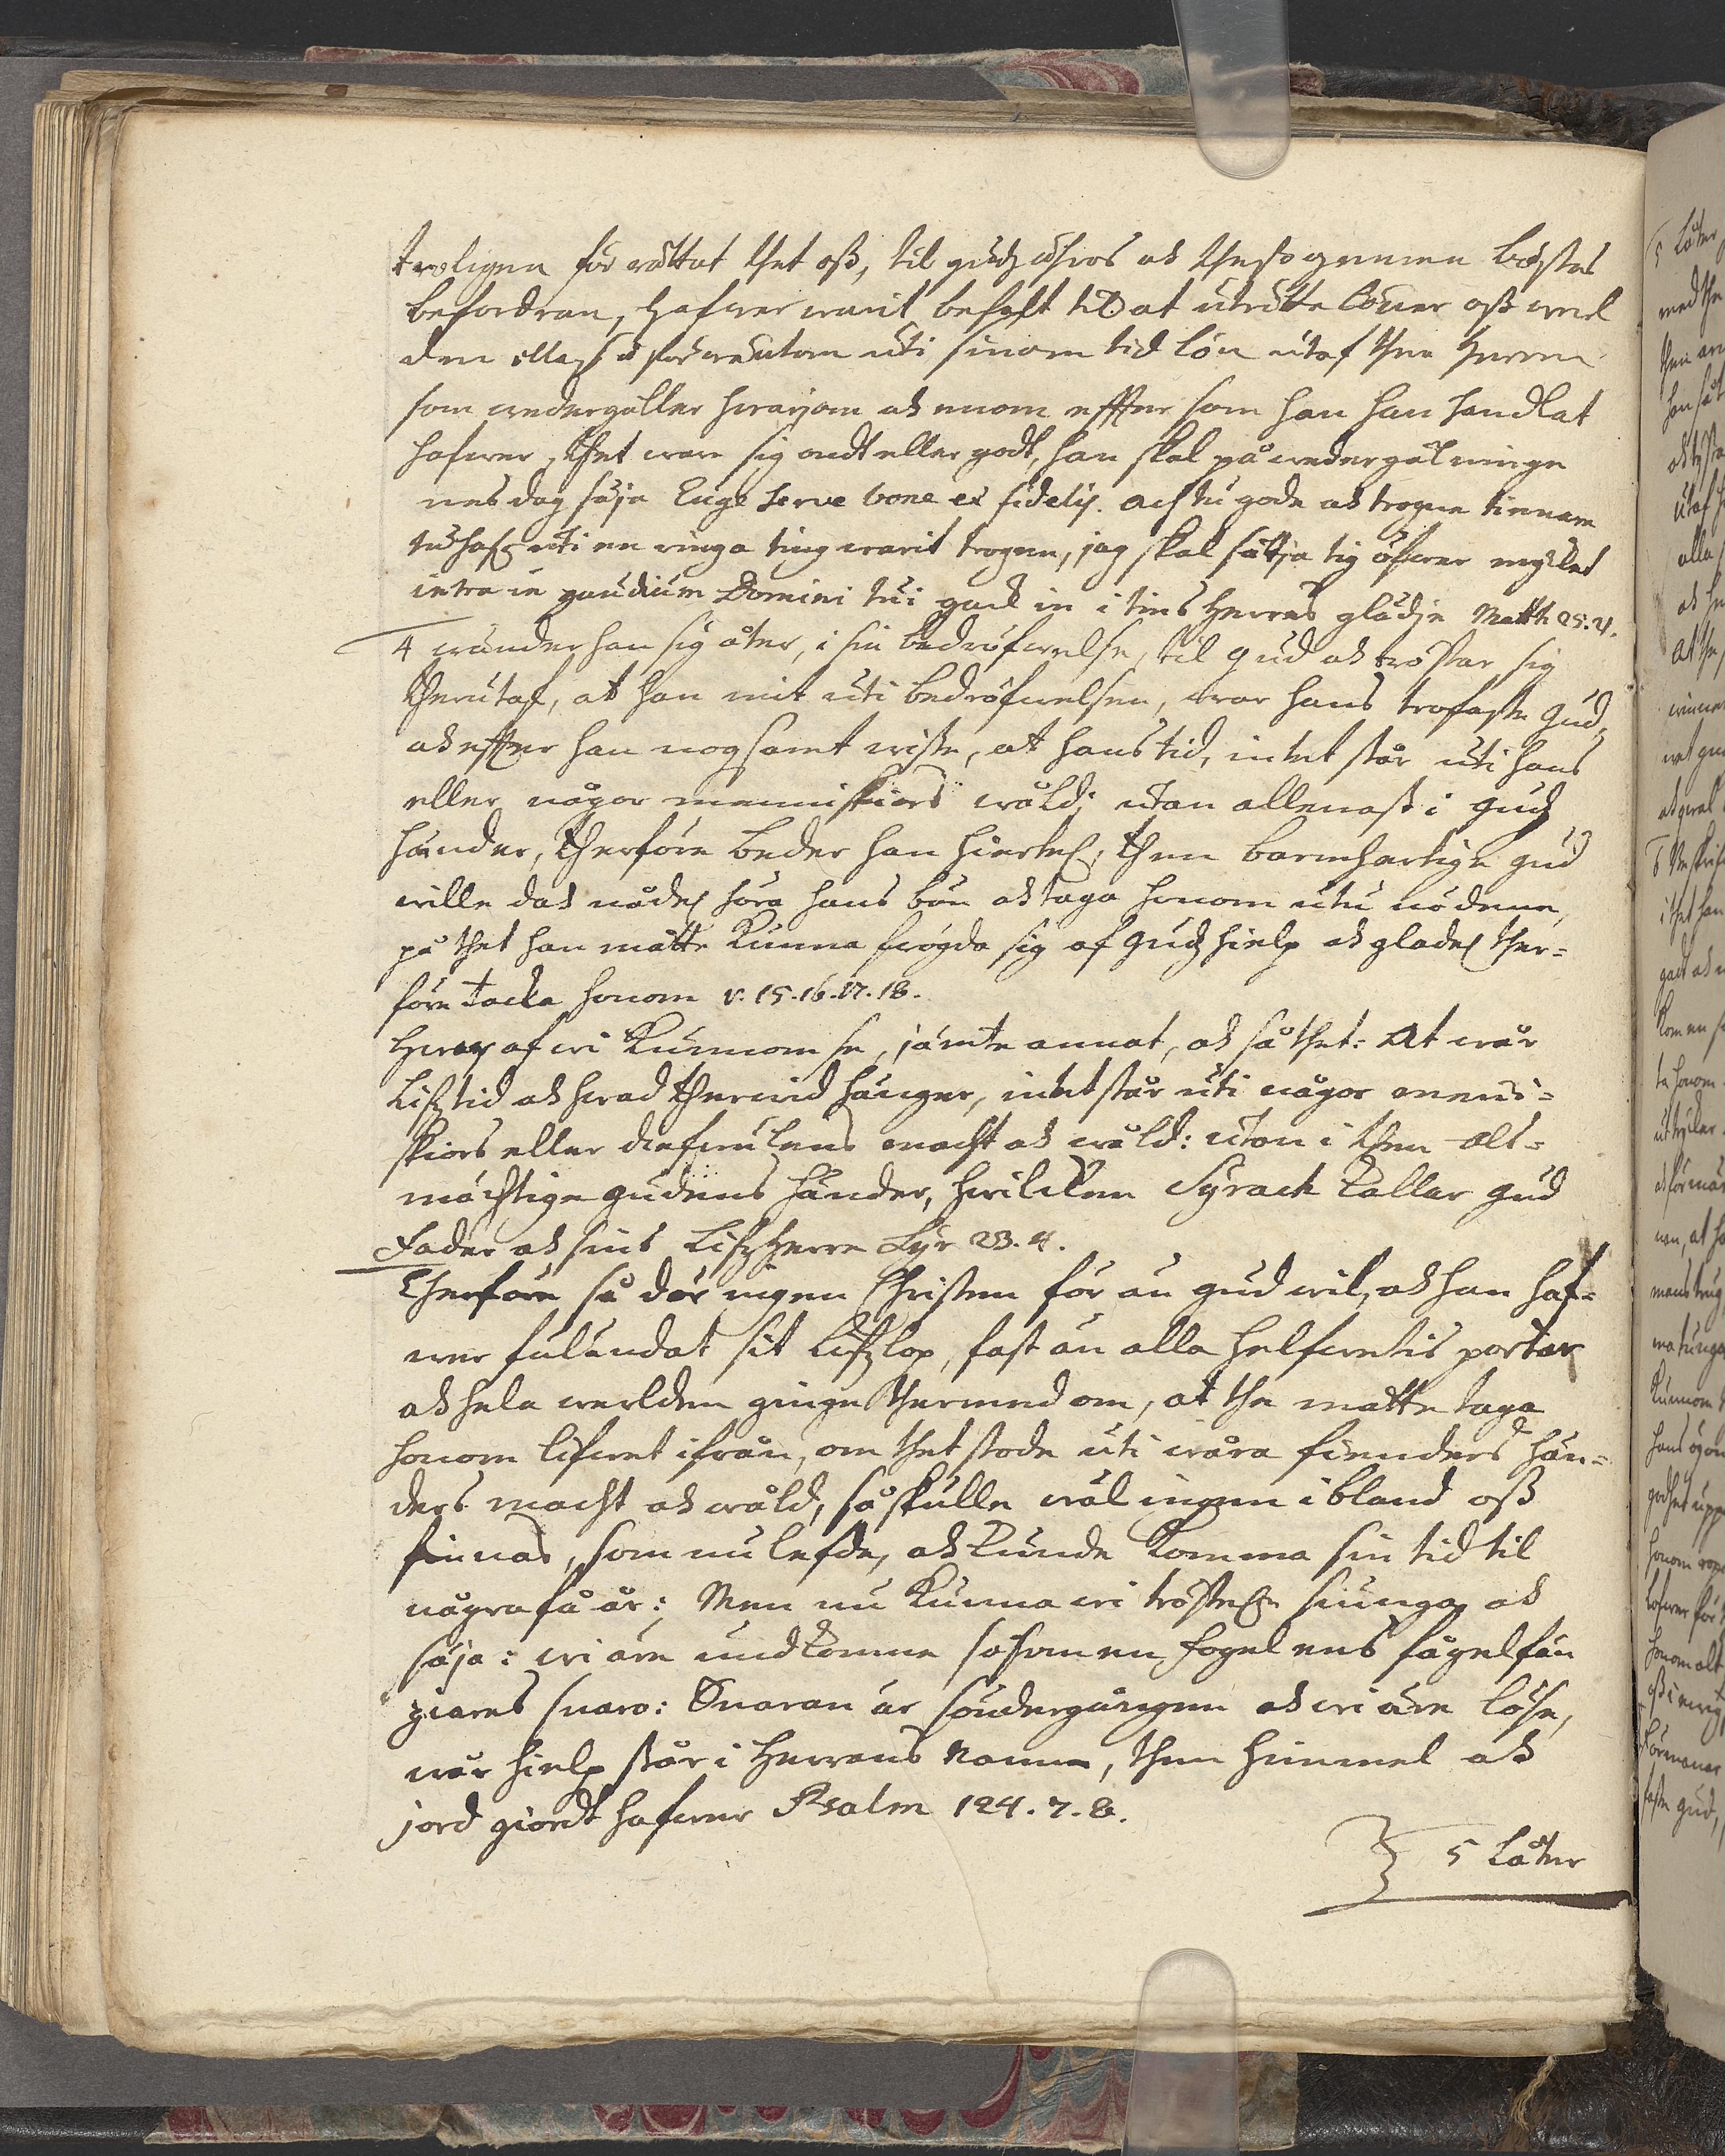 troligen för rättat thet oß, til gudz ähros ok thesso gemena bästas
befordran, hafwer warit befalt til at uträtta
den uti sinom tid lön utaf then Herren
som wedergäller hwarjom ok enom effter som han han handlat
hafwer, thet ware sig ondt eller godt, han skal på wedergälninge
nes dag säja Euge serve bone et fidelis. ach tu gode ok trogne tienare
tu hafr uti en ringa ting warit trogen, jag skal sättja tig öfwer myket
intra in gaudium Domini tui gack in i tins Herras glädje Matth 25. 21.
4 wänder han sig åter, i sin bedröfwelse, til gud ok tröstar sig
therutaf, at han mit uti bedröfwelsen, war hans trofaste Gud,
ok effter han nogsamt wiste, at hans tid, intet står uti hans
eller någor menniskiors wåld; utan allenast i gudz
händer, therföre beder han hierteln, then barmhertige gud
wille dok nådel höra hans bön ok taga honom utu nödene,
på thet han måtte kunna frögda sig af Gudz hielp ok gladel ther=
före tacka honom v. 15. 16. 17. 18.
Hwar af wi kunnom se, jämte annat, ok så thet: At wår
Lifztid ok hwad therwid hänger, intet står uti någor menni=
skiors eller diefwulens macht ok wåld: utan i then alt=
mächtige gudens händer, hwilcken Syrach kallar gud
Fader ok sins Lifz Herre Syr 23. 4.
Therföre så dör ingen Christen för än gud wil, ok han haf=
wer fuländat sit Lifzlop, fast än alla helfwetis portar
ok hela werlden ginge thermed om, at the måtte taga
honom lifwet ifrån, om thet stode uti wåra fienders hän=
ders macht ok wåld, så skulle wäl ingen ibland oß
finnas, som nu lefde, ok kunde komma sin tid til
några få år: Men nu kunna wi tröstel siunga ok
säja: wi äre undkomne såsom en fogel ens fågelfän
giares snaro: Snaran är söndergången ok wi äre löse,
wår hielp står i Herrans Namn, then himmel ok
jord giordt hafwer Psalm 124. 7. 8.
5 Låter